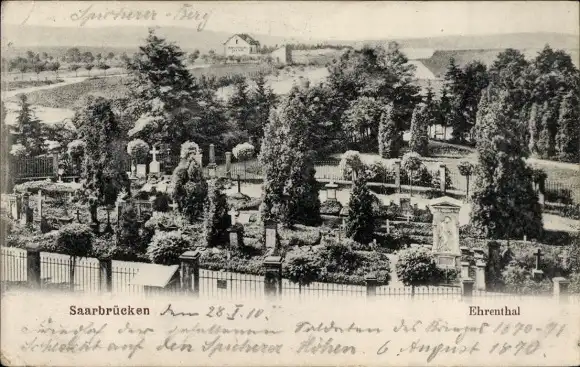 Spicherer-Berg
Saarbrücken den 28.I.10. Ehrenthal
Friedhof der gefallenen Soldaten des Krieges 1870-71
Schlacht auf den Spicherer Höhen. 6 August 1870.